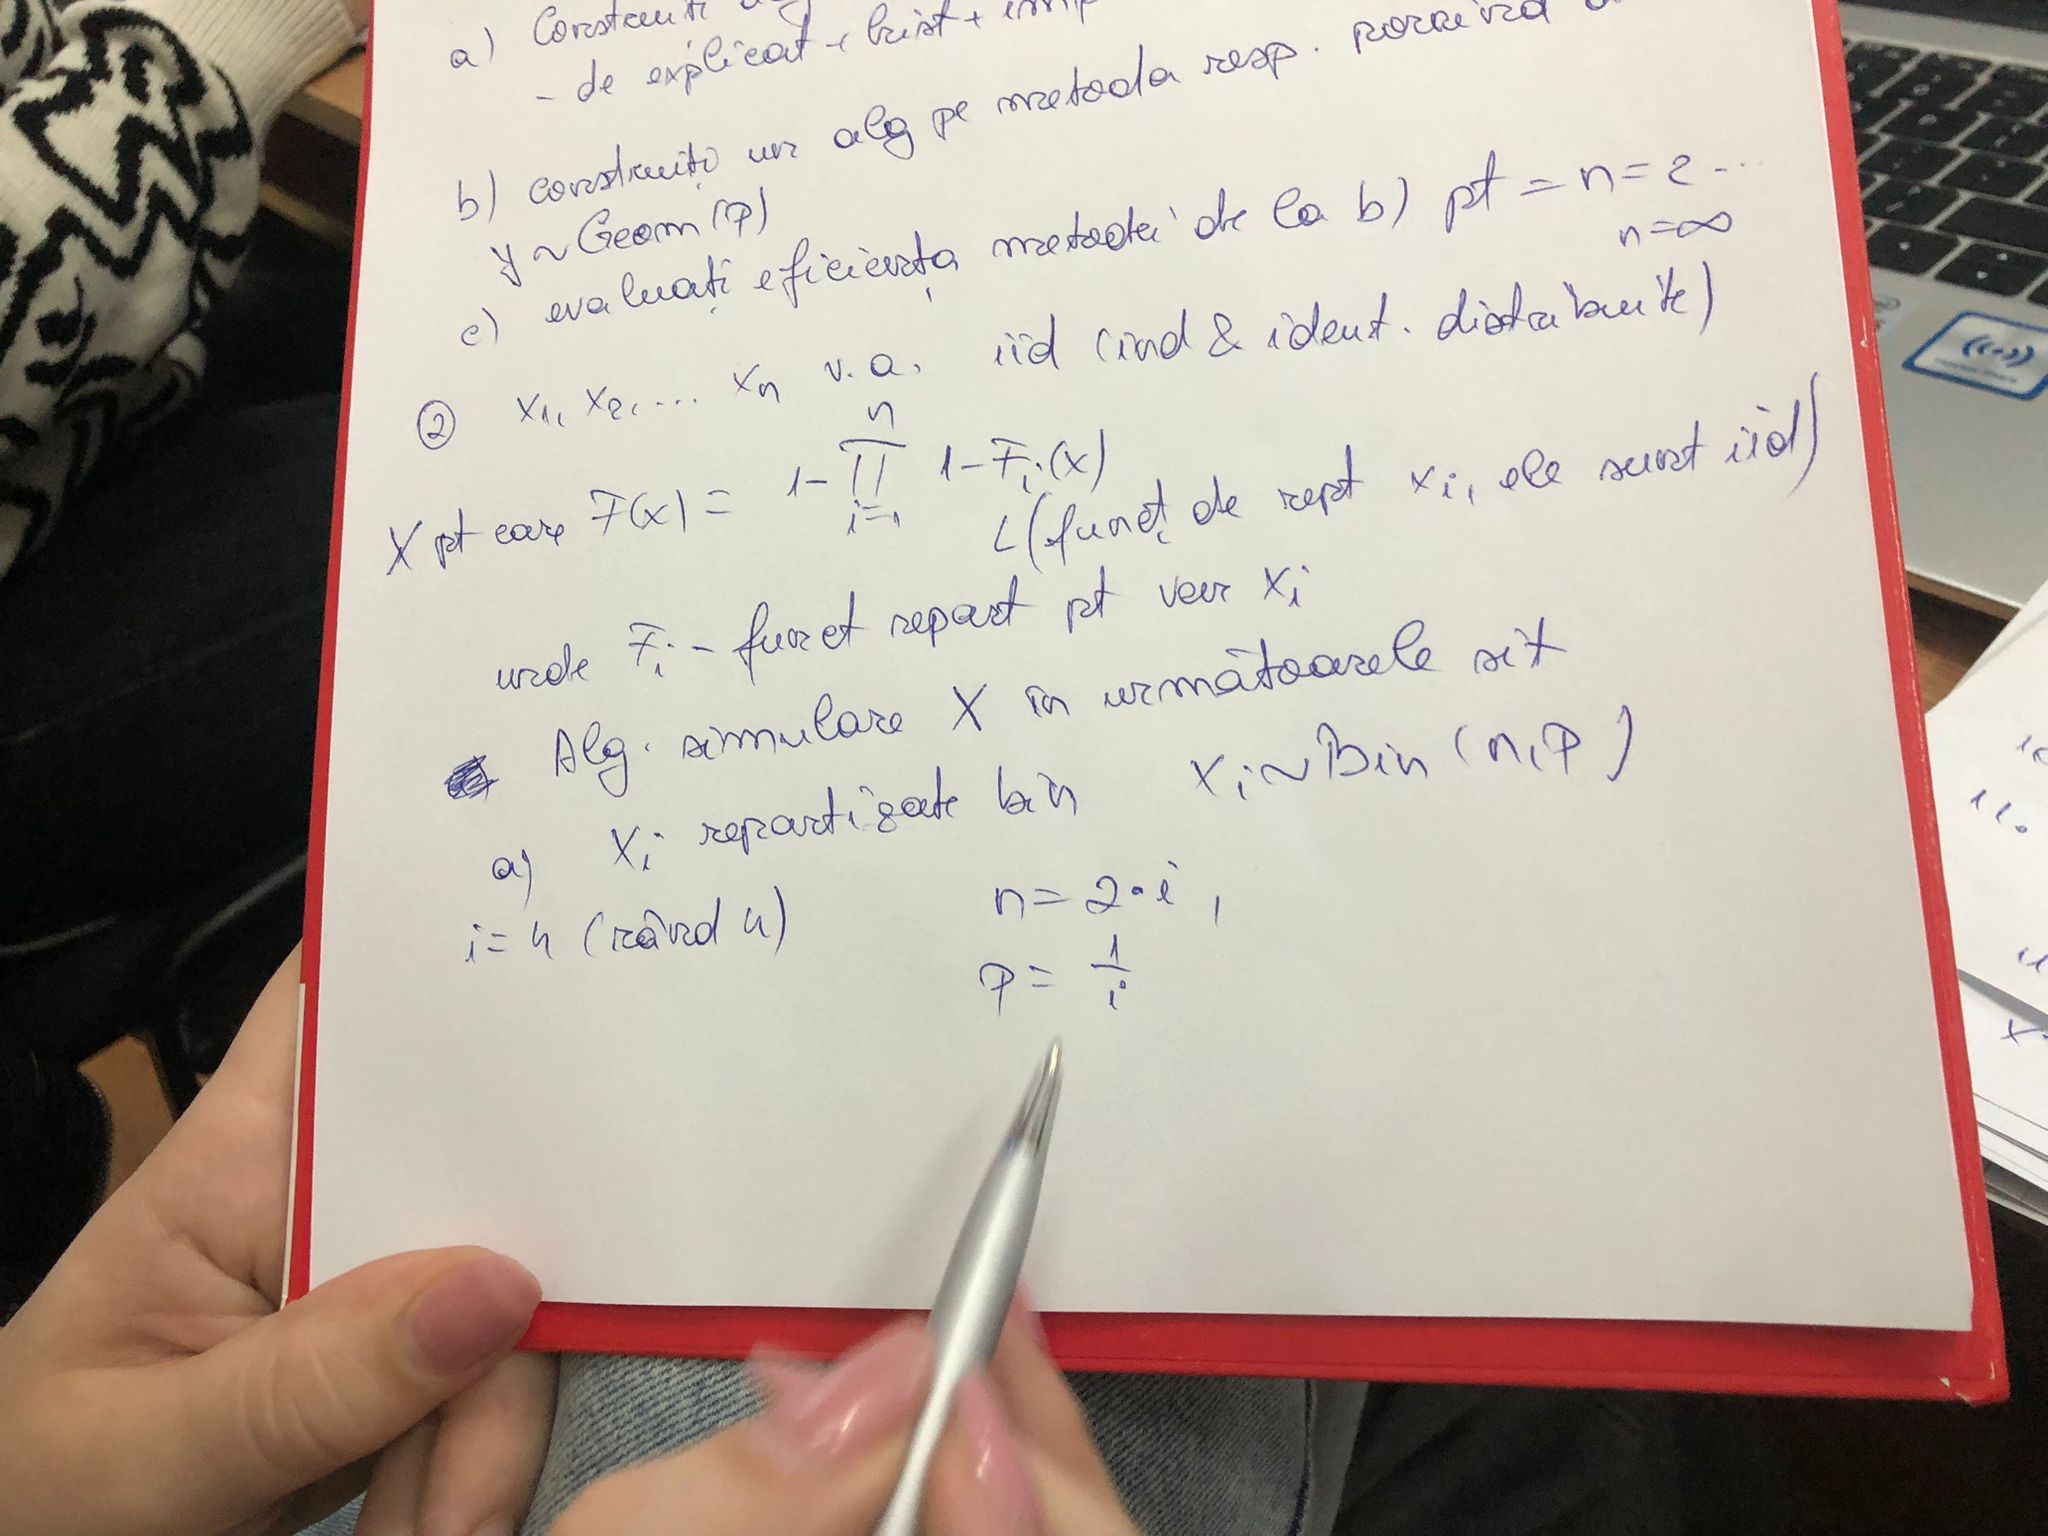 a) Construiți
- de explicat + hist + imp
b) construiți un alg pe metoda resp. pornind
y ~ Geom(p)
c) evaluați eficiența metodei de la b) pt = n = 2 ...
n = ∞
② x₁, x₂, ... xₙ v.a. iid (ind & ident. distribuite)
X pt care F(x) = 1 - ∏ⁿᵢ₌₁ 1 - Fᵢ(x)
L (funcț de rept xᵢ, ele sunt iid)
unde Fᵢ - funct repart pt var xᵢ
Alg. simulare X în următoarele sit
a) xᵢ repartizate bin xᵢ ~ Bin (n, p)
i = 4 (rând 4) n = 2 · i ,
p = 1/i